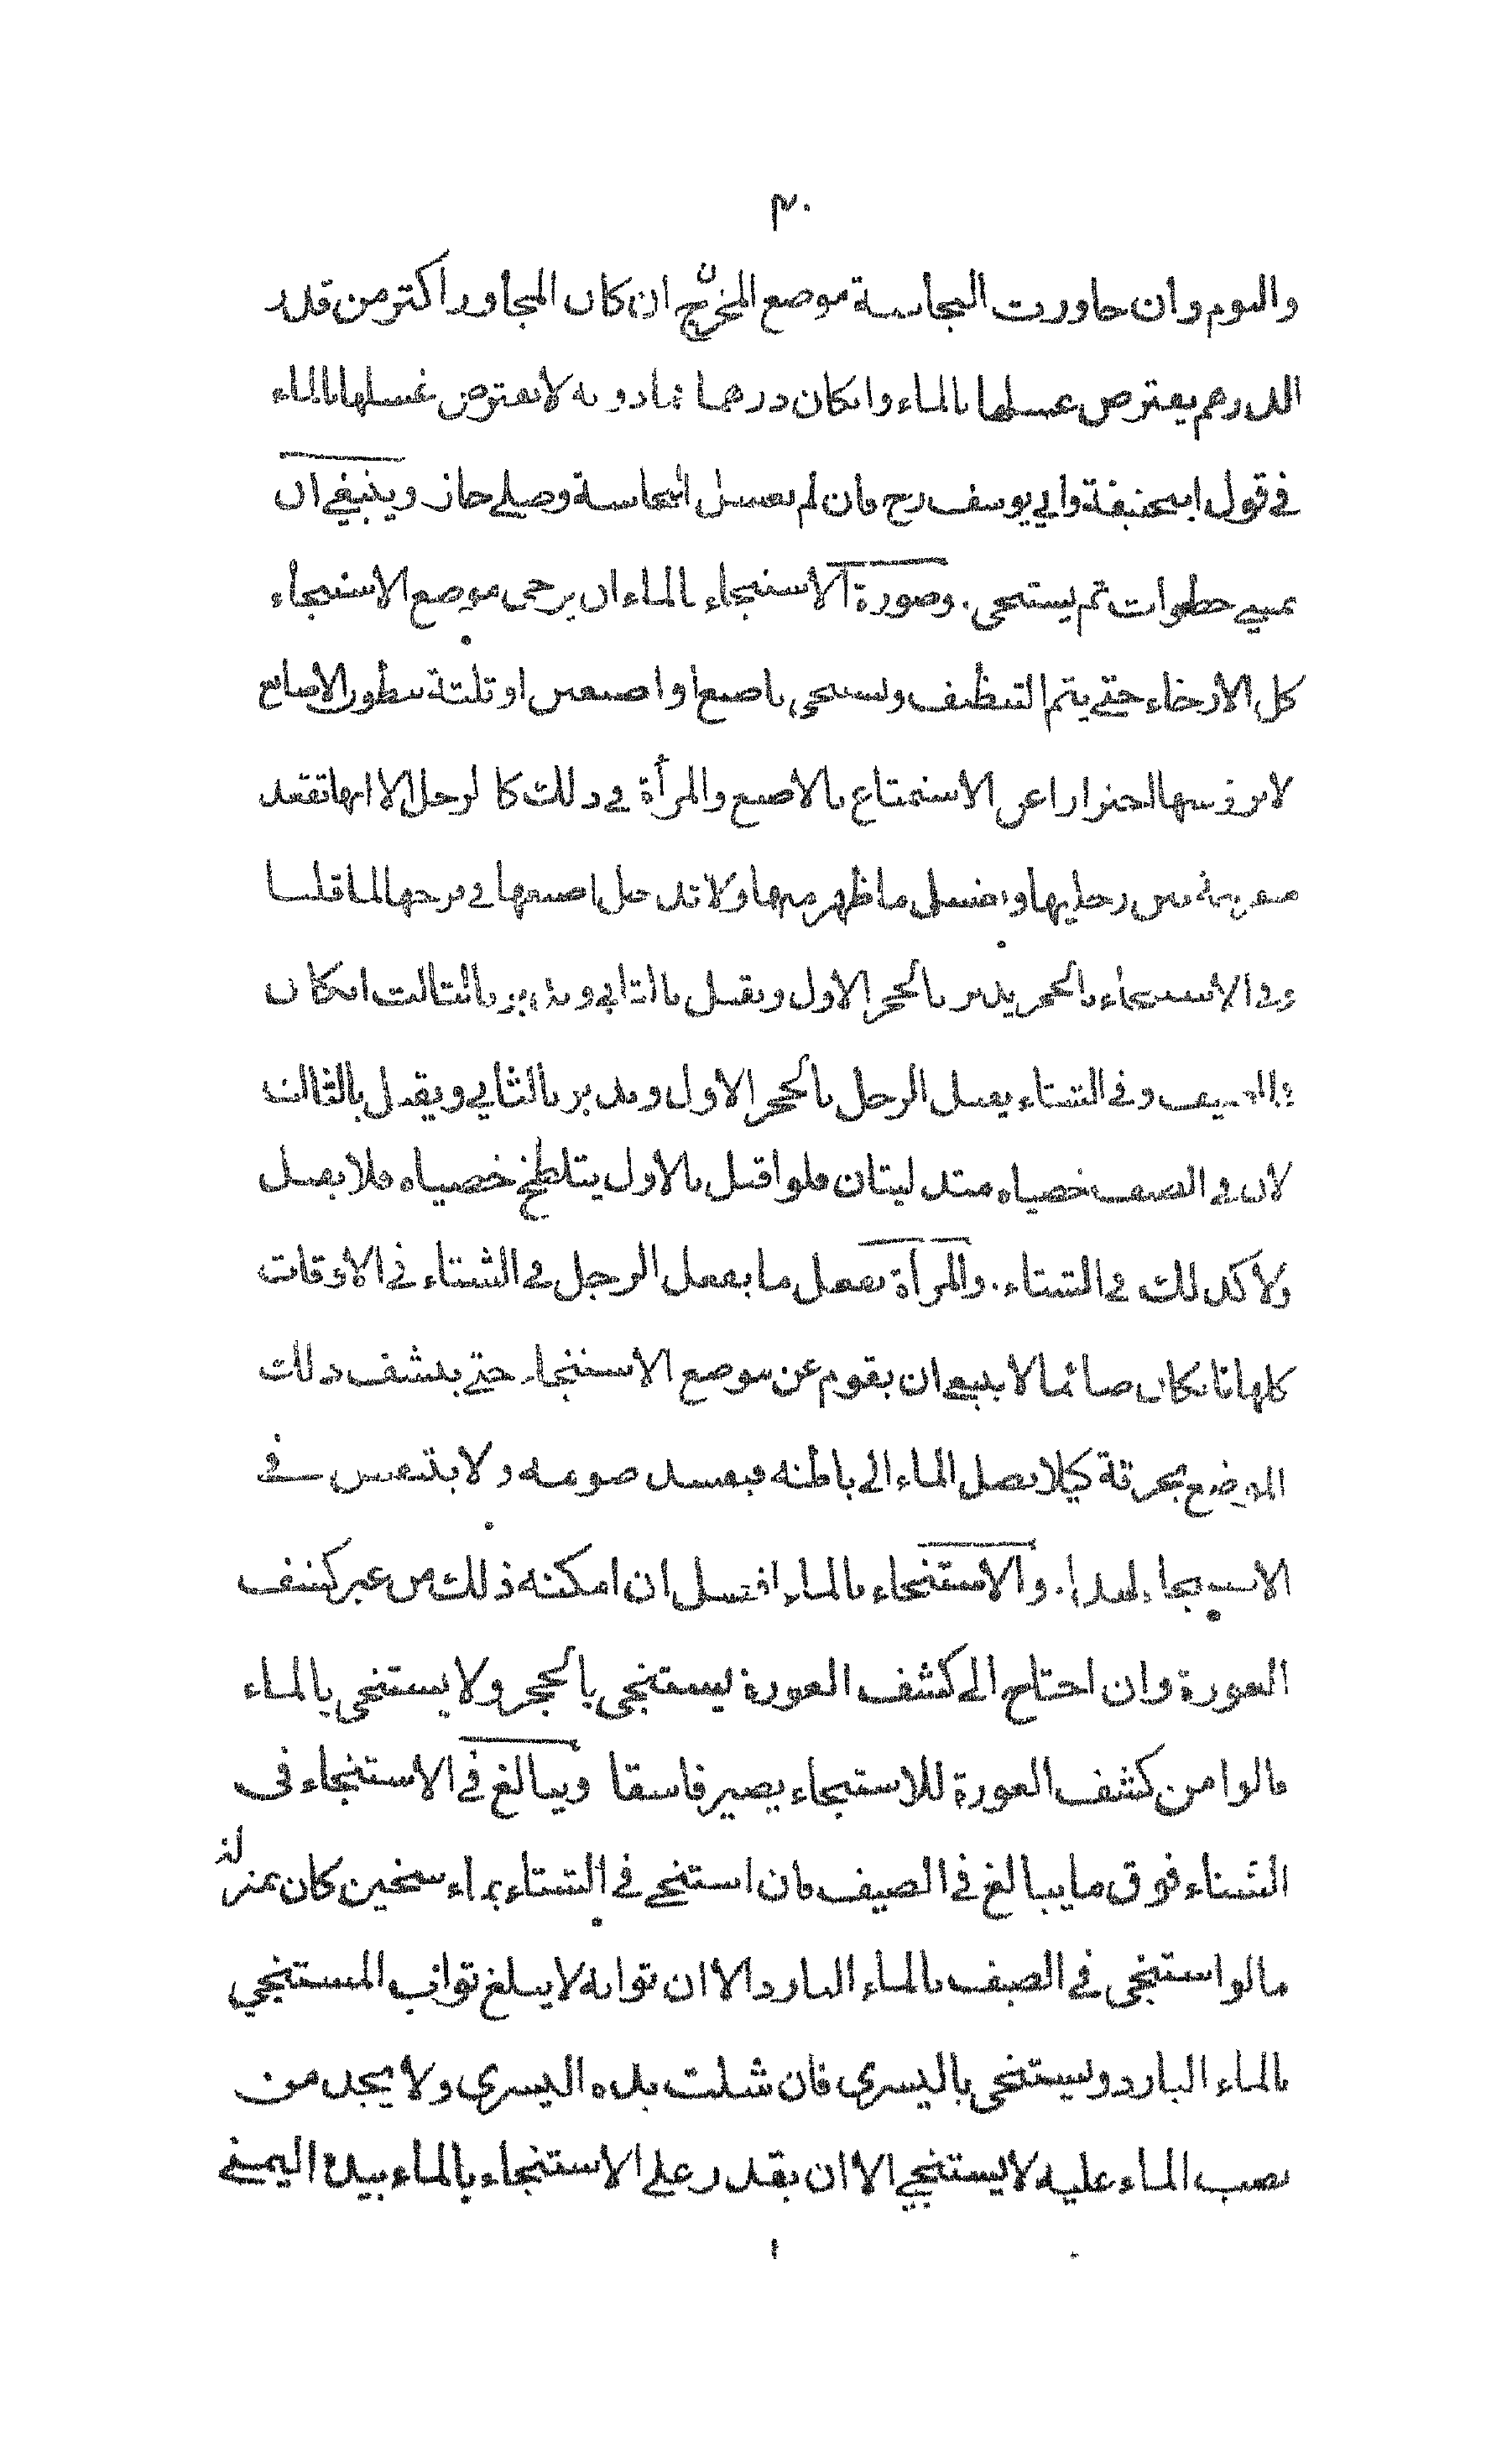 ٣٠
والنوم وان جاورت النجاسة موضع المخرج ان كان المجاور اكثر من قدر
الدرهم يفترض غسلها بالماء وانكان درهما فما دونه لا يفترض غسلها بالماء
في قول ابيحنيفة وابي يوسف رح فان لم يغسل النجاسة وصلي جاز وينبغي ان
يمشي خطوات ثم يستنجي . وصورة الاستنجاء بالماء ان يرخي موضع الاستنجاء
كل الارخاء حتي يتم التنظيف ويستنجي باصبع او اصبعين او ثلثة ببطون الاصابع
لا برؤسها احترازا عن الاستمتاع بالاصبع والمرأة في ذلك كالرجل الا انها تقعد
منفرجة بين رجليها وتغسل ما ظهر منها ولا تدخل اصبعها في فرجها لما قلنا
وفي الاستنجاء بالحجر يدبر بالحجر الاول ويقبل بالثاني ويدبر بالثالث انكان
في الصيف وفي الشتاء يقبل الرجل بالحجر الاول ويدبر بالثاني ويقبل بالثالث
لان في الصيف خصياه متدليتان فلو اقبل بالاول يتلطخ خصياه فلا يقبل
ولا كذلك في الشتاء . والمرأة تفعل ما يفعل الرجل في الشتاء في الاوقات
كلها فانكان صائما لا ينبغي ان يقوم عن موضع الاستنجاء حتي ينشف ذلك
الموضع بخرقة كيلا يصل الماء الي باطنه فيفسد صومه ولا يتنفس في
الاستنجاء لهذا . والاستنجاء بالماء افضل ان امكنه ذلك من غير كشف
العورة وان احتاج الي كشف العورة يستنجي بالحجر ولا يستنجي بالماء
قالوا من كشف العورة للاستنجاء يصير فاسقا ويبالغ في الاستنجاء في
الشتاء فوق ما يبالغ في الصيف فان استنجي في الشتاء بماء سخين كان بمنزلة
ما لو استنجي في الصيف بالماء البارد الا ان ثوابه لا يبلغ ثواب المستنجي
بالماء البارد ويستنجي باليسري فان شلت يده اليسري ولا يجد من
يصب الماء عليه لا يستنجي الا ان يقدر علي الاستنجاء بالماء بيده اليمني